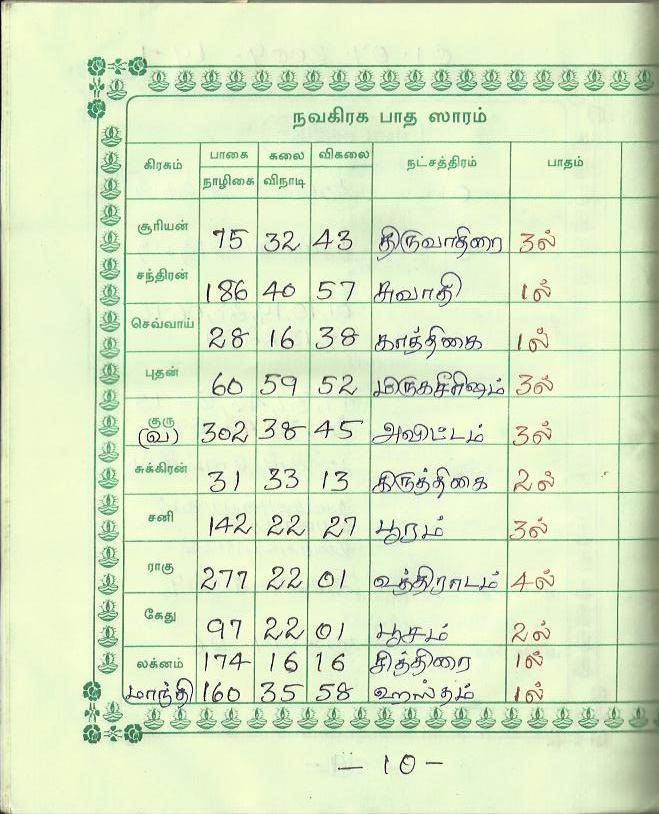 நவகிரக பாத ஸாரம்
கிரகம் பாகை கலை விகலை நட்சத்திரம் பாதம்
நாழிகை விநாடி
சூரியன் 75 32 43 திருவாதிரை 3ல்
சந்திரன் 186 40 57 சுவாதி 1ல்
செவ்வாய் 28 16 38 கார்த்திகை 1ல்
புதன் 60 59 52 மிருகசீரிஷம் 3ல்
குரு (வ) 302 38 45 அவிட்டம் 3ல்
சுக்கிரன் 31 33 13 கிருத்திகை 2ல்
சனி 142 22 27 பூரம் 3ல்
ராகு 277 22 01 உத்திராடம் 4ல்
கேது 97 22 01 பூசம் 2ல்
லக்னம் 174 16 16 சித்திரை 1ல்
மாந்தி 160 35 58 ஹஸ்தம் 1ல்
- 10 -